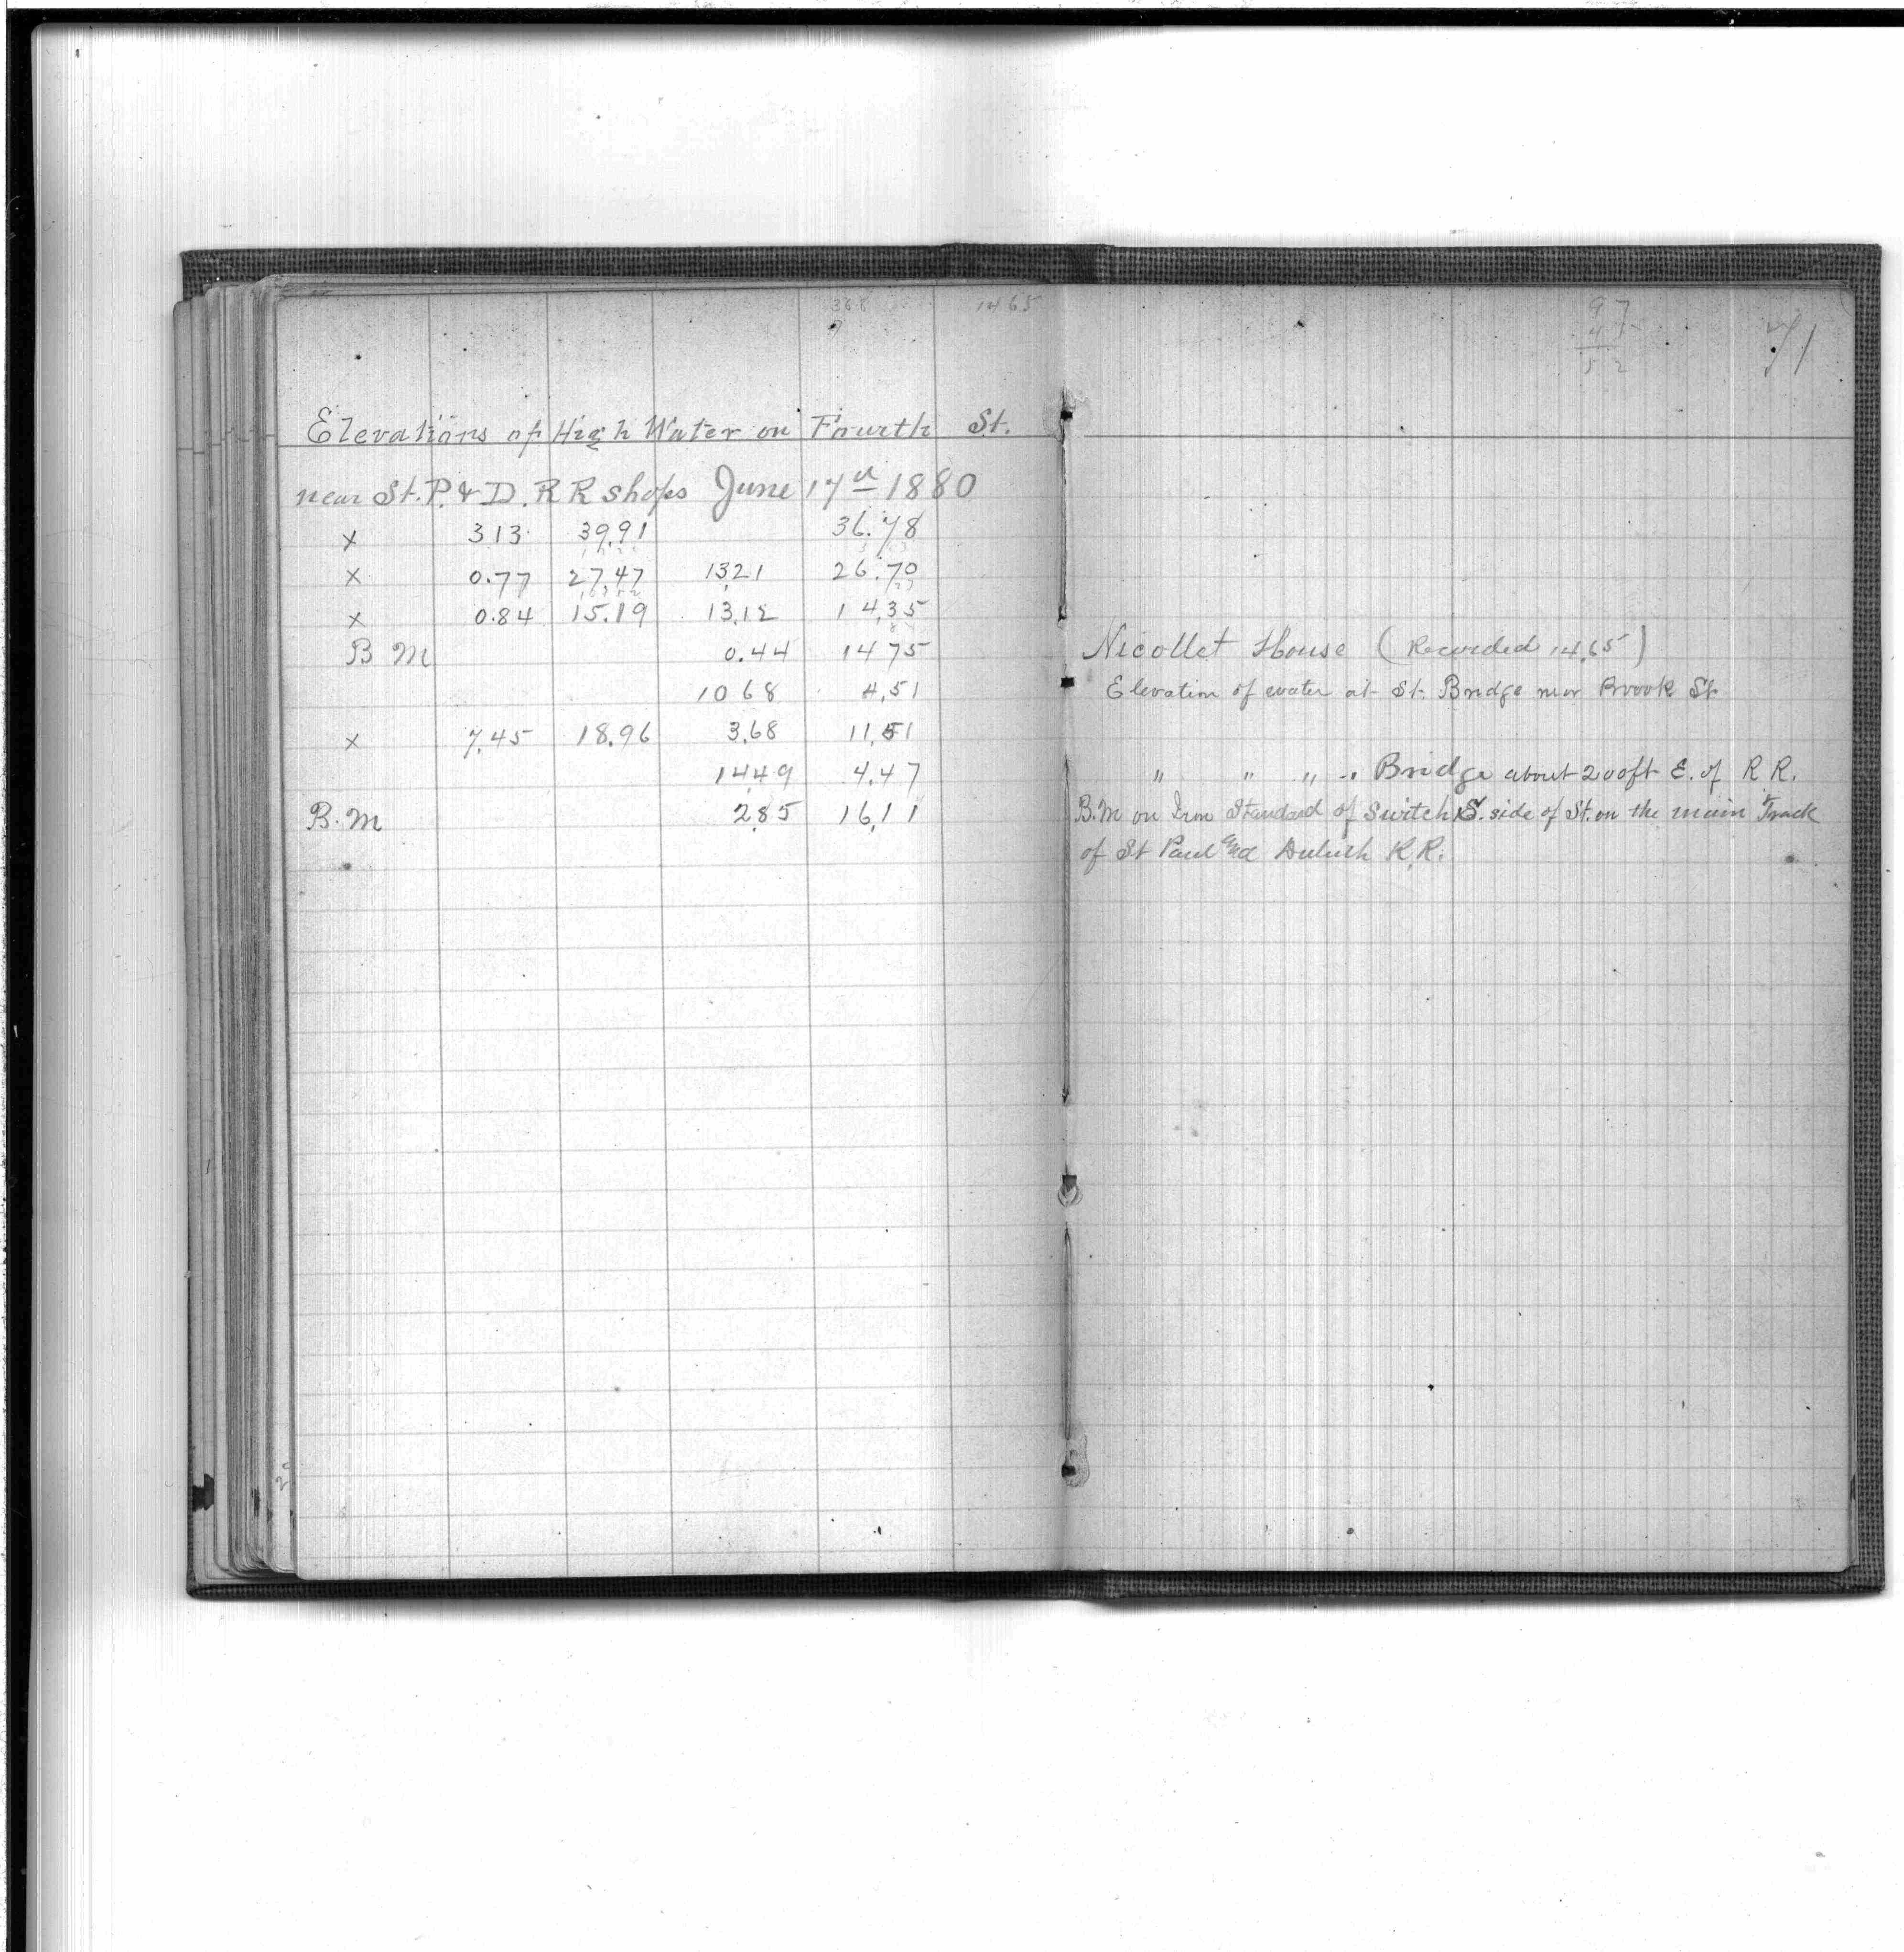 368 1465
97
45
52
71
Elevations of High Water on Fourth St.
near St. P. & D. R R shops June 17th 1880
x 3.13 39.91 36.78
x 0.77 27.47 13.21 26.70
x 0.84 15.19 13.12 14.35
B M 0.44 14.75 Nicollet House (Recorded 14.65)
10.68 4.51 Elevation of water at St. Bridge near Brook St.
x 7.45 18.96 3.68 11.51
14.49 4.47 " " " " Bridge about 200 ft E. of R R.
B. M 2.85 16.11 B. M on Iron Standard of Switch S. side of St. on the main Track
of St Paul and Duluth R. R.